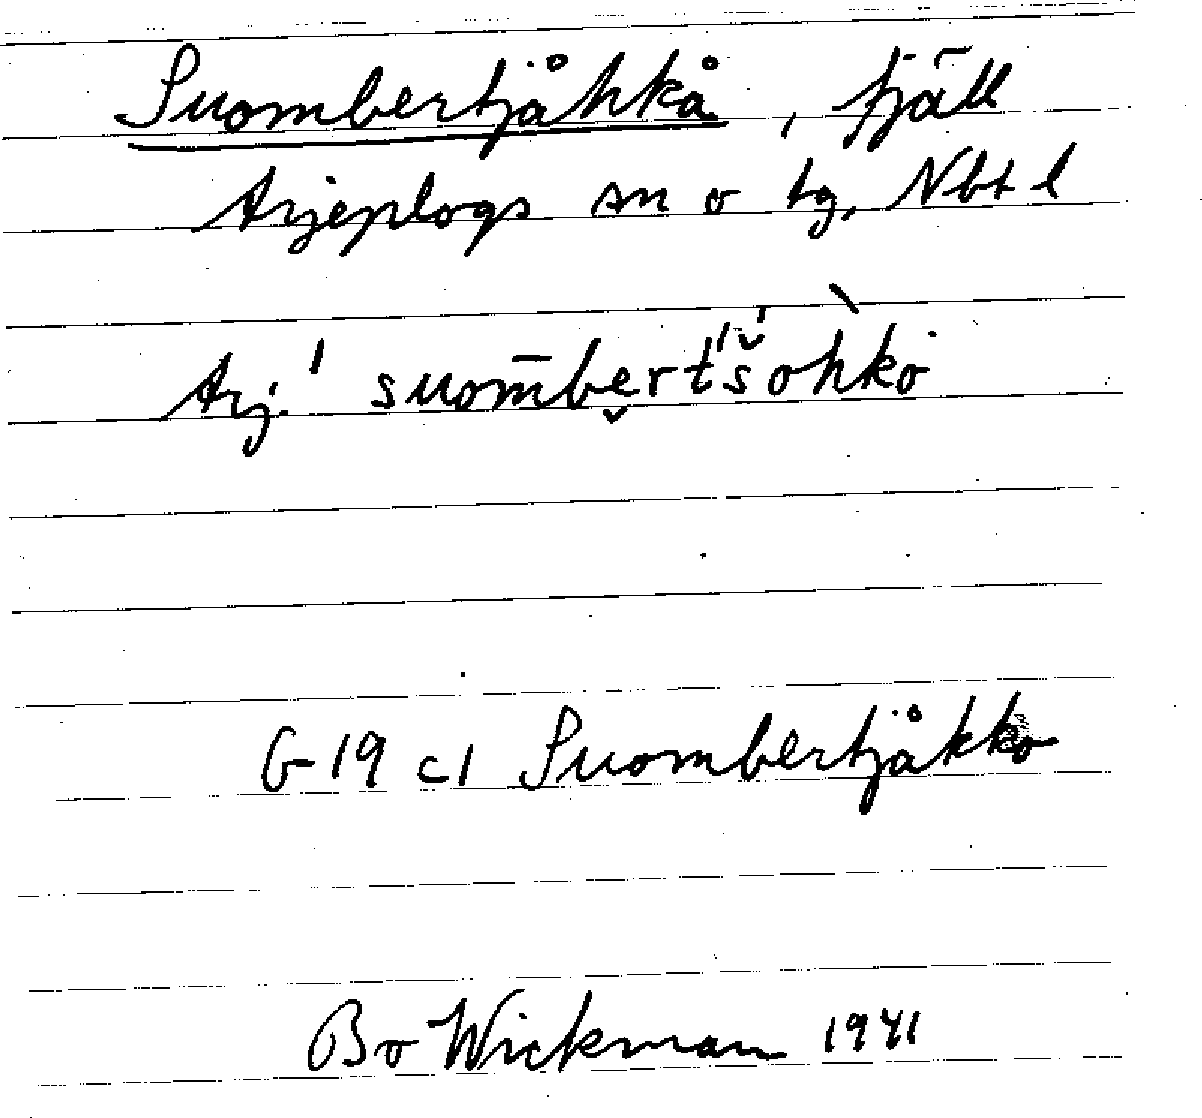 Suombertjåhkå, fjäll
Arjeplogs sn o tg, Nbt l
Arj. ˈsuom̅bęrt́ˈš́ˋohko
G 19 c1 Suombertjåkko
Bo Wickman 1941